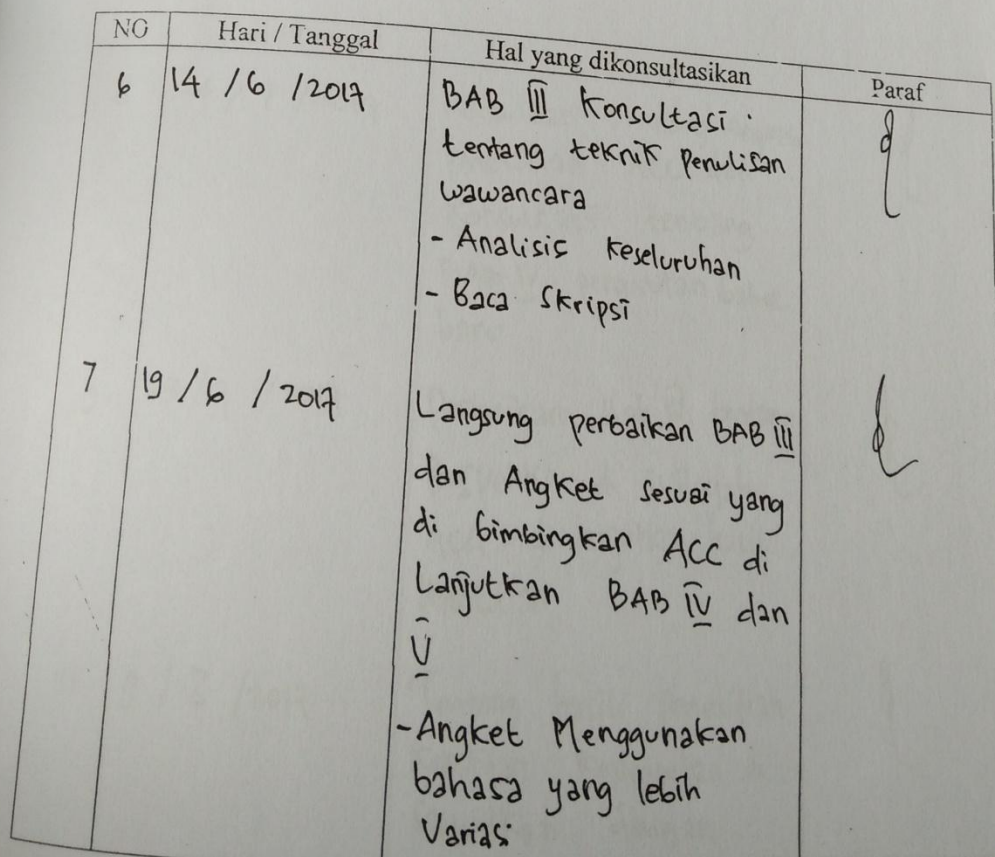 NO Hari / Tanggal Hal yang dikonsultasikan Paraf
6 14 / 6 / 2017 BAB III Konsultasi
tentang teknik penulisan
wawancara
- Analisis keseluruhan
- Baca Skripsi
7 19 / 6 / 2017 Langsung perbaikan BAB III
dan Angket sesuai yang
di bimbingkan ACC di
Lanjutkan BAB IV dan
V
- Angket Menggunakan
bahasa yang lebih
Variasi